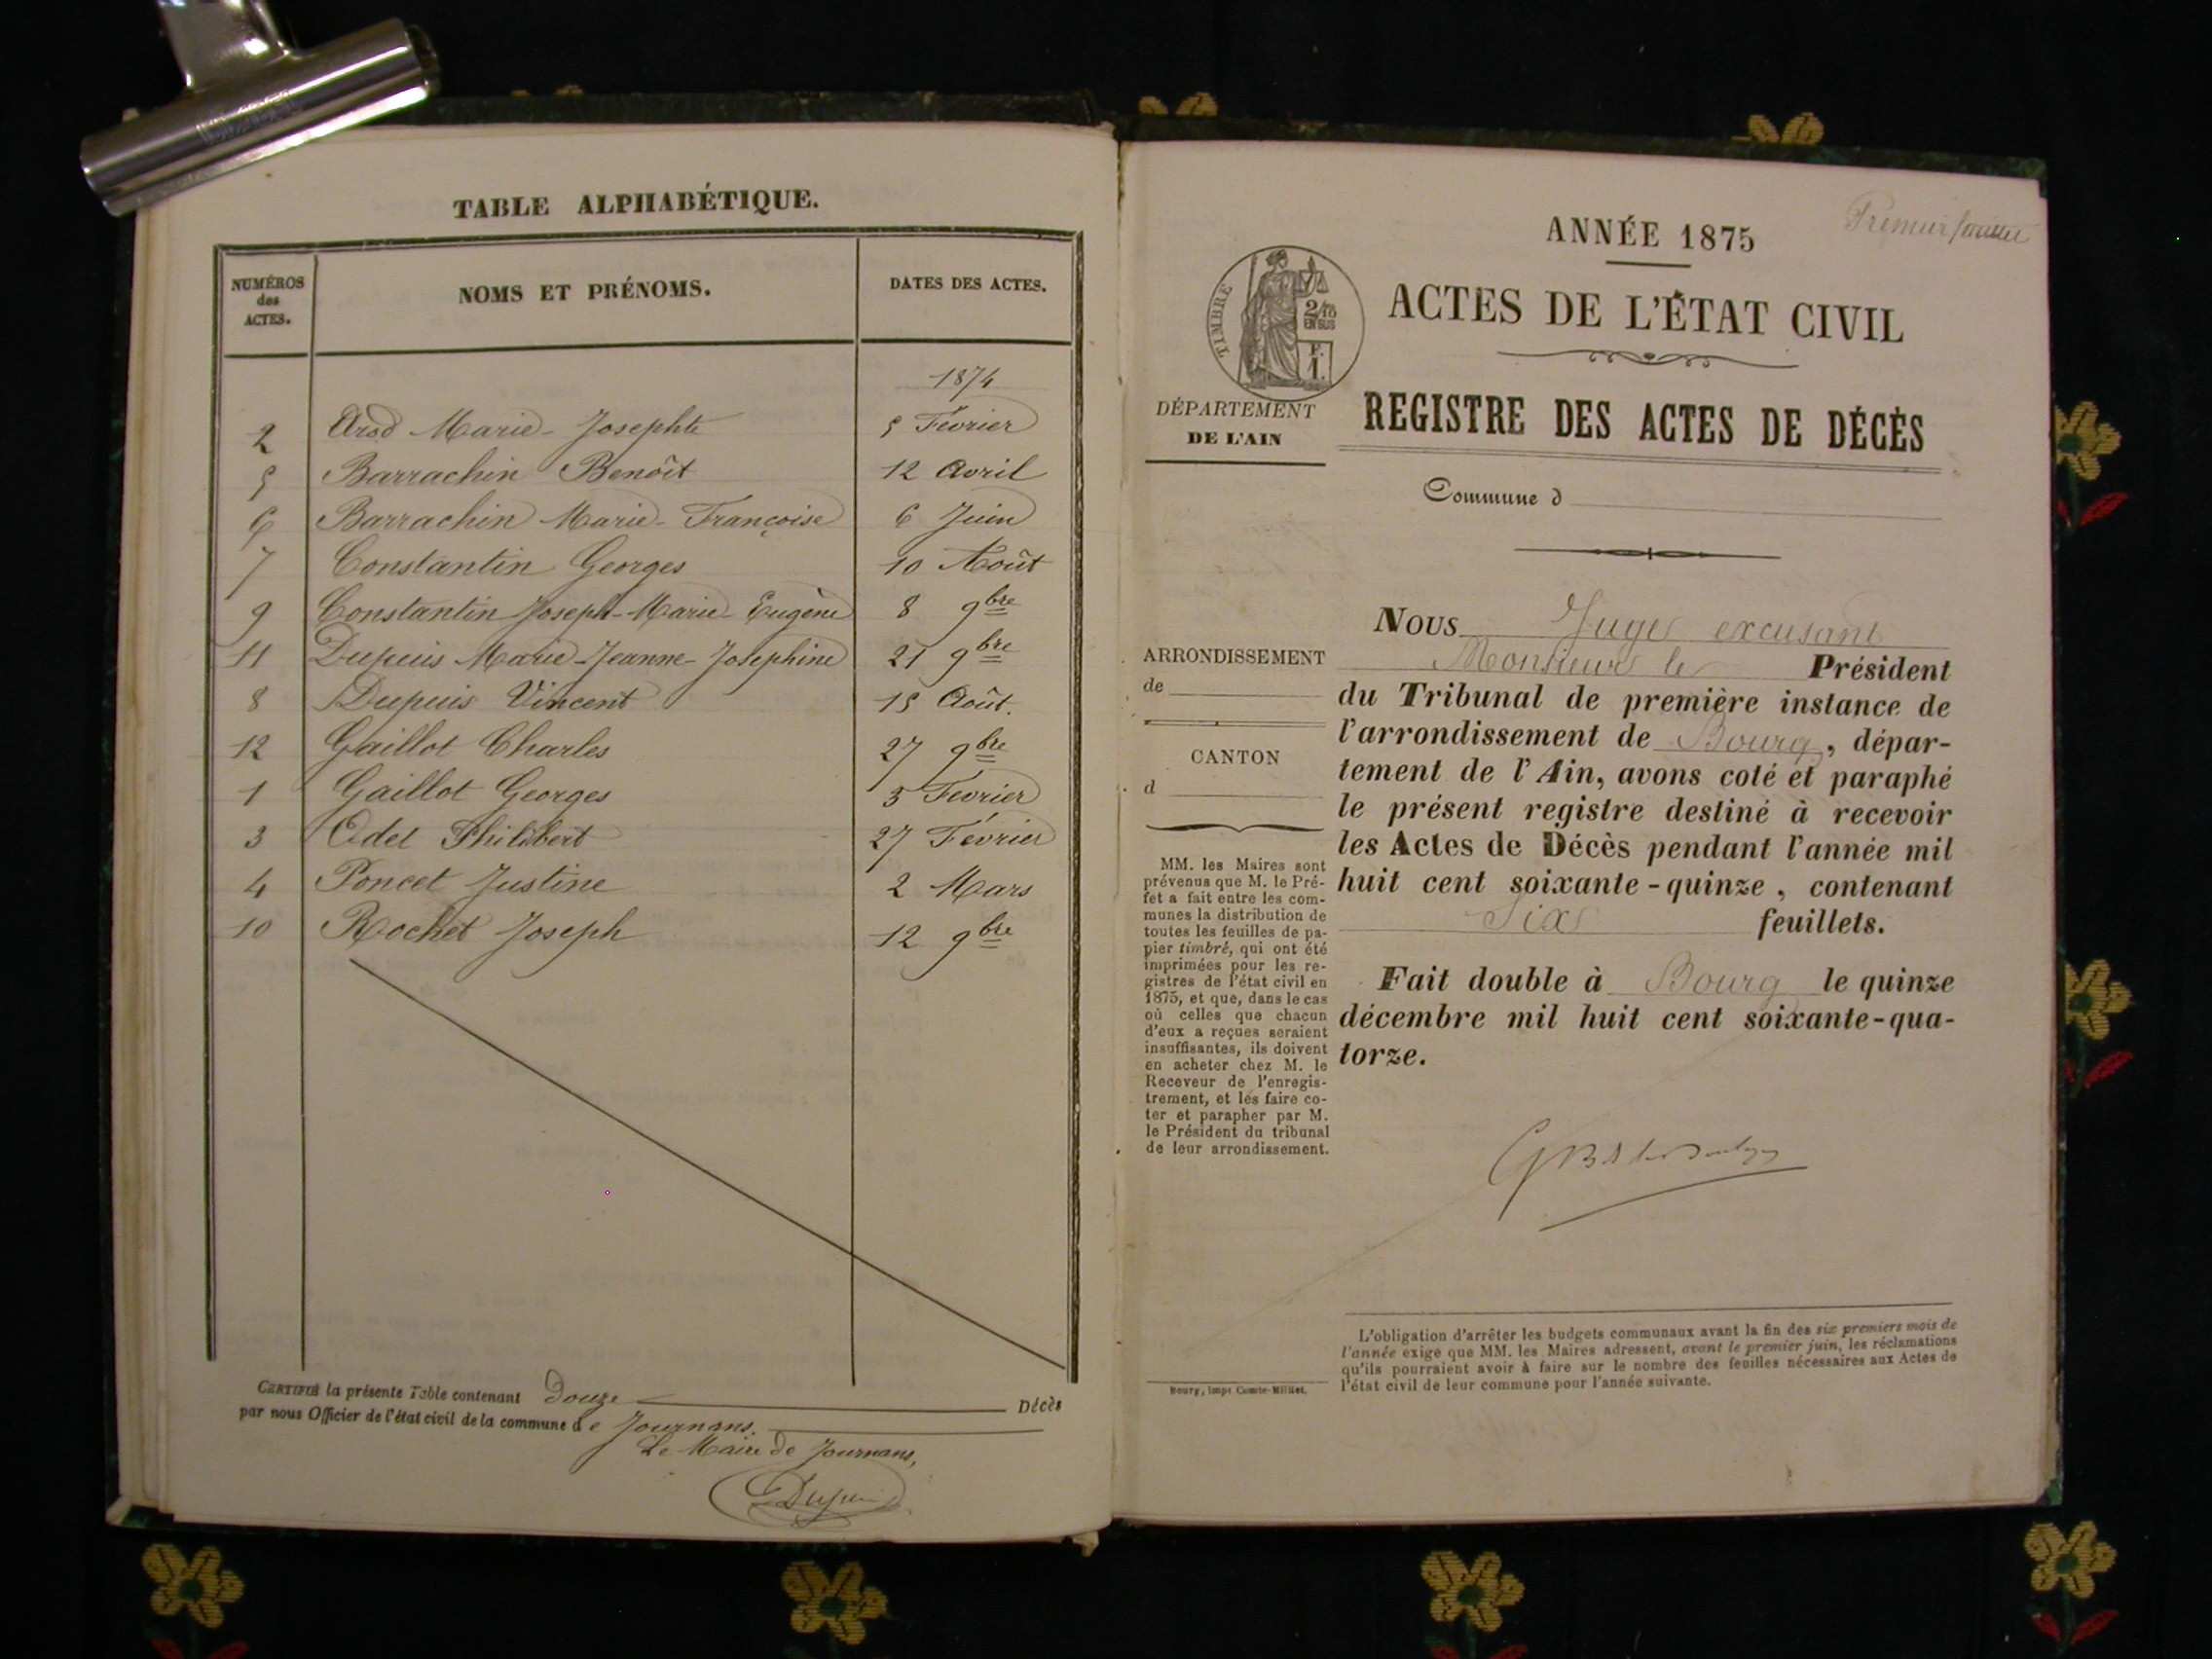 TABLE ALPHABÉTIQUE.
NUMÉROS des ACTES.
NOMS ET PRÉNOMS.
DATES DES ACTES.
1874
2 Arod Marie-Josephte 5 Février
5 Barrachin Benoît 12 Avril
6 Barrachin Marie-Françoise 6 Juin
7 Constantin Georges 10 Août
9 Constantin Joseph-Marie-Eugène 8 9bre
11 Dupuis Marie-Jeanne-Josephine 21 9bre
8 Dupuis Vincent 15 Août.
12 Gaillot Charles 27 9bre
1 Gaillot Georges 3 Février
3 Odet Philibert 27 Février
4 Poncet Justine 2 Mars
10 Rochet Joseph 12 9bre
CERTIFIÉ la présente Table contenant douze Décès
par nous Officier de l'état civil de la commune de Journans.
Le Maire de Journans,
Dupuis
Premier feuillet
ANNÉE 1875
ACTES DE L'ÉTAT CIVIL
TIMBRE
2/10
EN SUS
F.
1.
DÉPARTEMENT
DE L'AIN
REGISTRE DES ACTES DE DÉCÈS
Commune d
ARRONDISSEMENT
de
CANTON
d
MM. les Maires sont
prévenus que M. le Pré-
fet a fait entre les com-
munes la distribution de
toutes les feuilles de pa-
pier timbré, qui ont été
imprimées pour les re-
gistres de l'état civil en
1875, et que, dans le cas
où celles que chacun
d'eux a reçues seraient
insuffisantes, ils doivent
en acheter chez M. le
Receveur de l'enregis-
trement, et les faire co-
ter et parapher par M.
le Président du tribunal
de leur arrondissement.
Nous Juge excusant
Monsieur le Président
du Tribunal de première instance de
l'arrondissement de Bourg, dépar-
tement de l'Ain, avons coté et paraphé
le présent registre destiné à recevoir
les Actes de Décès pendant l'année mil
huit cent soixante-quinze, contenant
Six feuillets.
Fait double à Bourg le quinze
décembre mil huit cent soixante-qua-
torze.
L'obligation d'arrêter les budgets communaux avant la fin des six premiers mois de
l'année exige que MM. les Maires adressent, avant le premier juin, les réclamations
qu'ils pourraient avoir à faire sur le nombre des feuilles nécessaires aux Actes de
l'état civil de leur commune pour l'année suivante.
Bourg, impr Comte-Milliet.